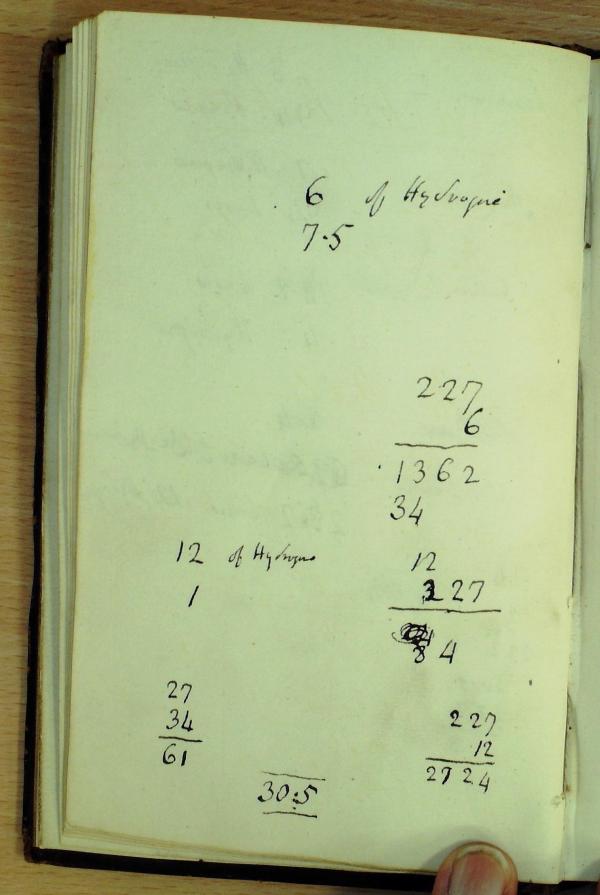 6 of Hydrogene
7.5
227
6
1362
34
12 of Hydrogene
1
12
227
84
27
34
61
227
12
2724
30:5